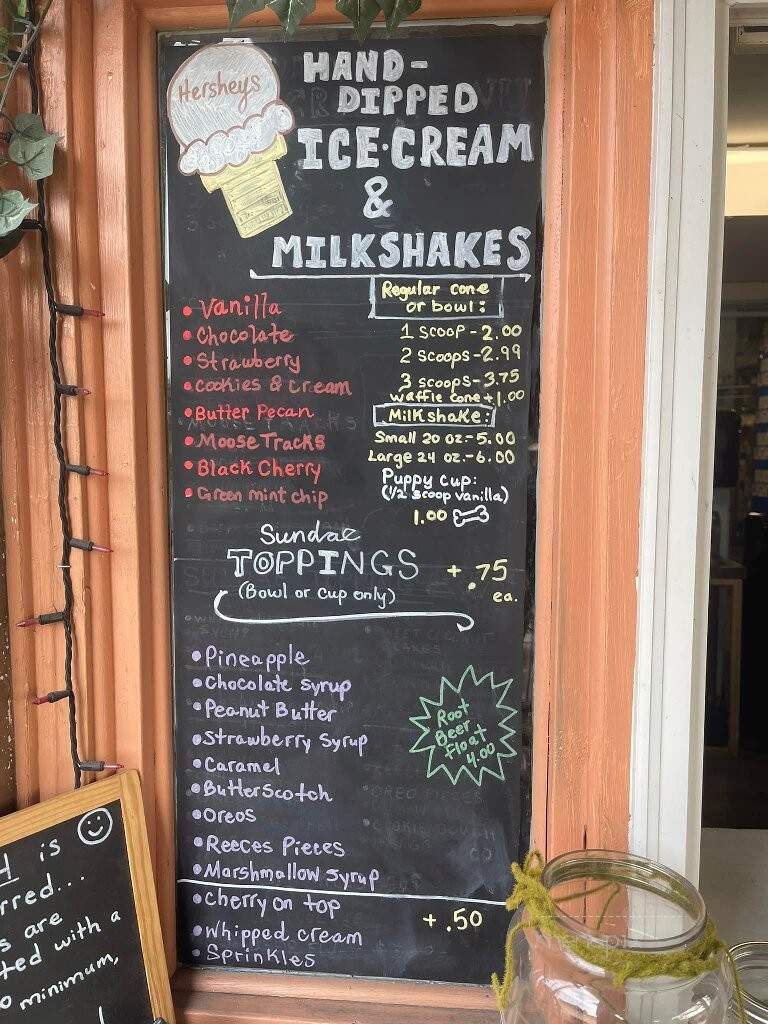 Hersheys
HAND-
DIPPED
ICE·CREAM
&
MILKSHAKES
• Vanilla
• Chocolate
• Strawberry
• Cookies & Cream
• Butter Pecan
• Moose Tracks
• Black Cherry
• Green mint chip
Regular cone
or bowl:
1 scoop - 2.00
2 scoops - 2.99
3 scoops - 3.75
waffle cone + 1.00
Milkshake:
Small 20 oz. - 5.00
Large 24 oz. - 6.00
Puppy Cup:
(1/2 scoop vanilla)
1.00
Sundae
TOPPINGS
(Bowl or cup only)
+ .75
ea.
• Pineapple
• Chocolate syrup
• Peanut Butter
• Strawberry Syrup
• Caramel
• Butterscotch
• Oreos
• Reeces Pieces
• Marshmallow syrup
Root
Beer
Float
4.00
• Cherry on top
• Whipped cream
• Sprinkles
+ .50
is
rred...
s are
ted with a
o minimum,